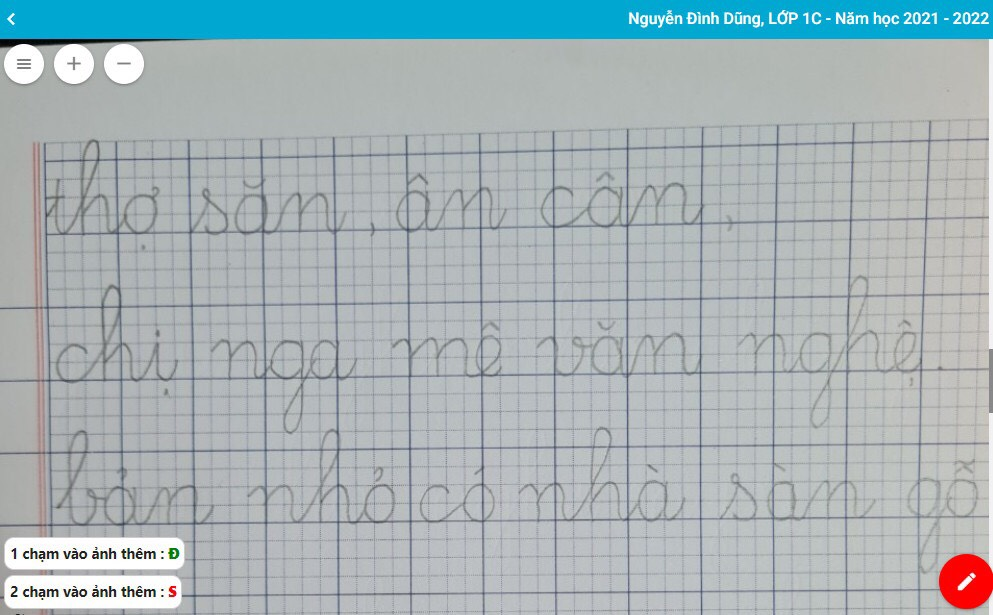 Nguyễn Đình Dũng, LỚP 1C - Năm học 2021 - 2022
thợ săn, ân cân,
chị nga mê văn nghệ.
bản nhỏ có nhà sàn gỗ
1 chạm vào ảnh thêm : Đ
2 chạm vào ảnh thêm : S